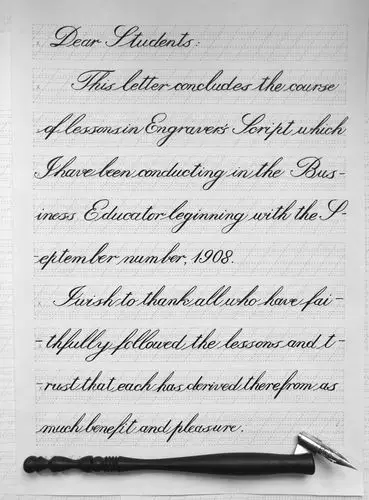 Dear Students:
This letter concludes the course
of lessons in Engraver's Script which
I have been conducting in the Bus-
iness Educator beginning with the S-
eptember number, 1908.
I wish to thank all who have fai-
-thfully followed the lessons and t-
-rust that each has derived therefrom as
much benefit and pleasure.